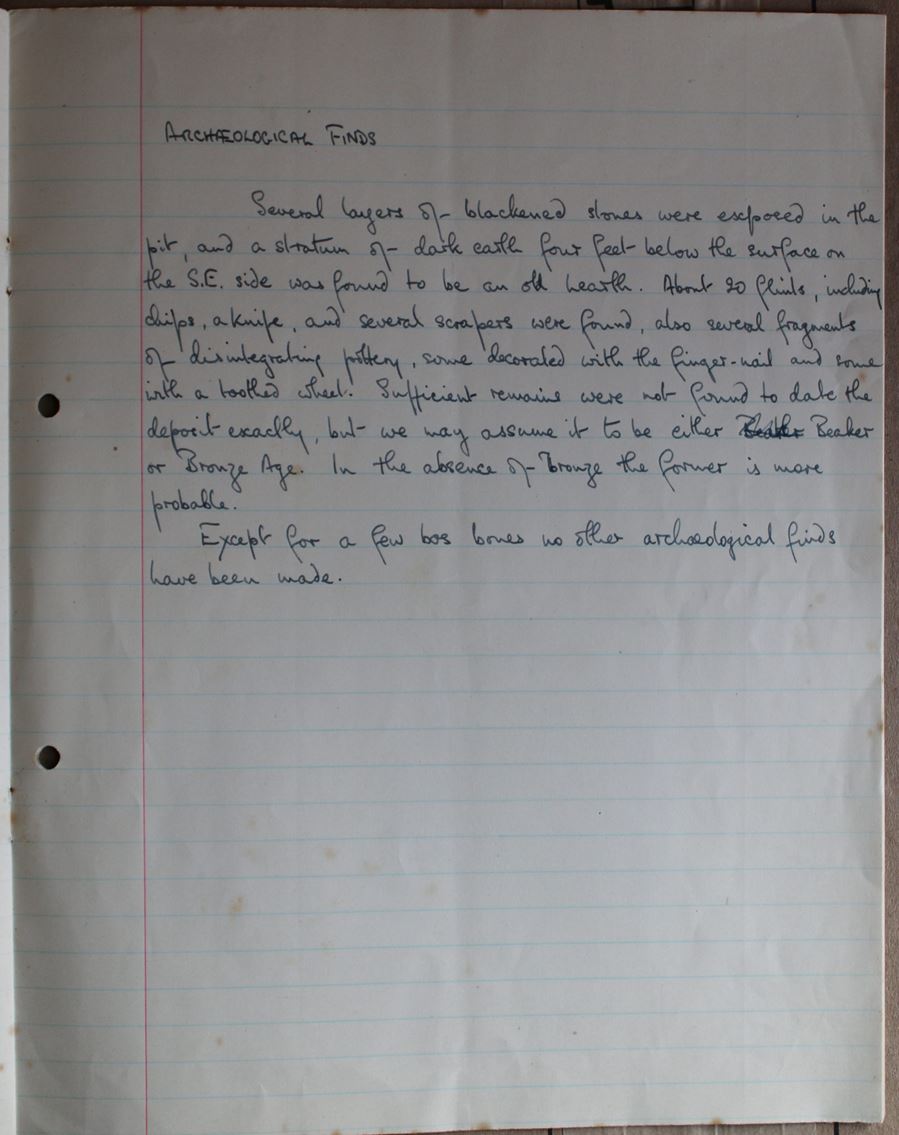 ARCHÆOLOGICAL FINDS
Several layers of blackened stones were exposed in the
pit, and a stratum of dark earth four feet below the surface on
the S.E. side was found to be an old hearth. About 20 flints, including
chips, a knife, and several scrapers were found, also several fragments
of disintegrating pottery, some decorated with the finger-nail and some
with a toothed wheel. Sufficient remains were not found to date the
deposit exactly, but we may assume it to be either Beaker
or Bronze Age. In the absence of bronze the former is more
probable.
Except for a few bos bones no other archæological finds
have been made.